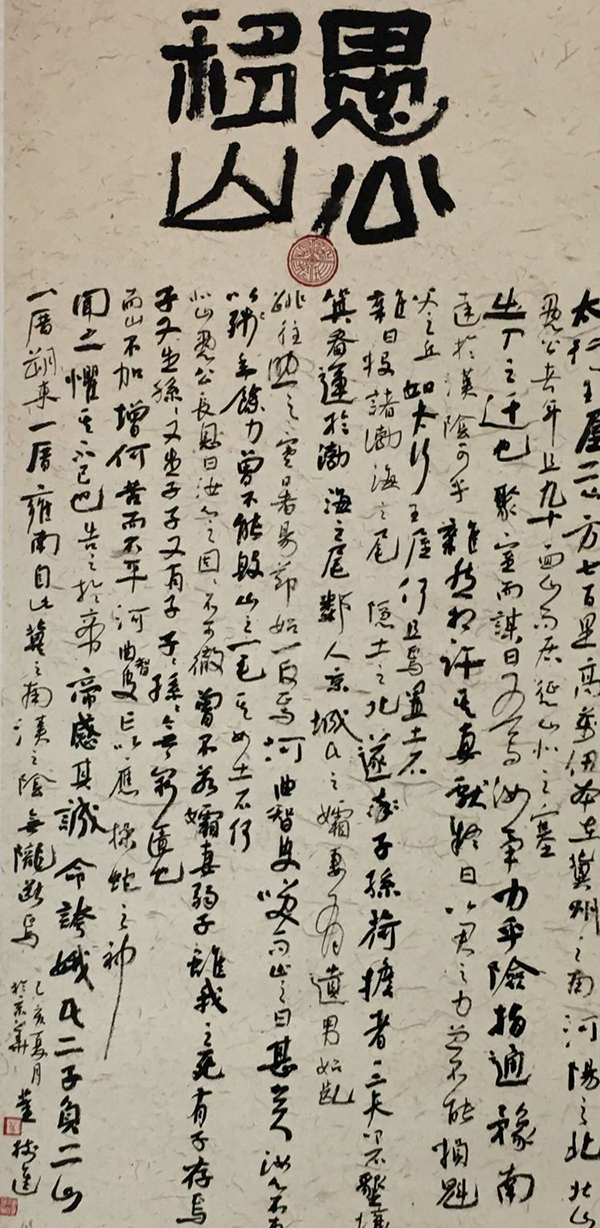 愚公
移山
太行王屋二山方七百里高萬仞本在冀州之南河陽之北北山
愚公者年且九十面山而居懲山北之塞
出入之迂也聚室而謀曰吾與汝畢力平險指通豫南
達於漢陰可乎雜然相許其妻獻疑曰以君之力曾不能損魁
父之丘如太行王屋何且焉置土石
雜曰投諸渤海之尾隱土之北遂率子孫荷擔者三夫叩石墾壤
箕畚運於渤海之尾鄰人京城氏之孀妻有遺男始齔
跳往助之寒暑易節始一反焉河曲智叟笑而止之曰甚矣汝之不惠
以殘年餘力曾不能毀山之一毛其如土石何
北山愚公長息曰汝心之固、不可徹曾不若孀妻弱子雖我之死有子存焉
子又生孫、又生子子又有子子、孫、無窮匱也
而山不加增何苦而不平河曲智叟亡以應操蛇之神
聞之懼其不已也告之於帝帝感其誠命誇娥氏二子負二山
一厝朔東一厝雍南自此冀之南漢之陰無隴斷焉
己亥夏月
於京華
董